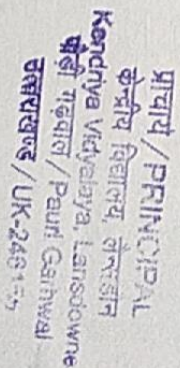 प्राचार्य / PRINCIPAL
केन्द्रीय विद्यालय, लैन्सडौन
Kendriya Vidyalaya, Lansdowne
पौड़ी गढ़वाल / Pauri Garhwal
उत्तराखण्ड / UK-